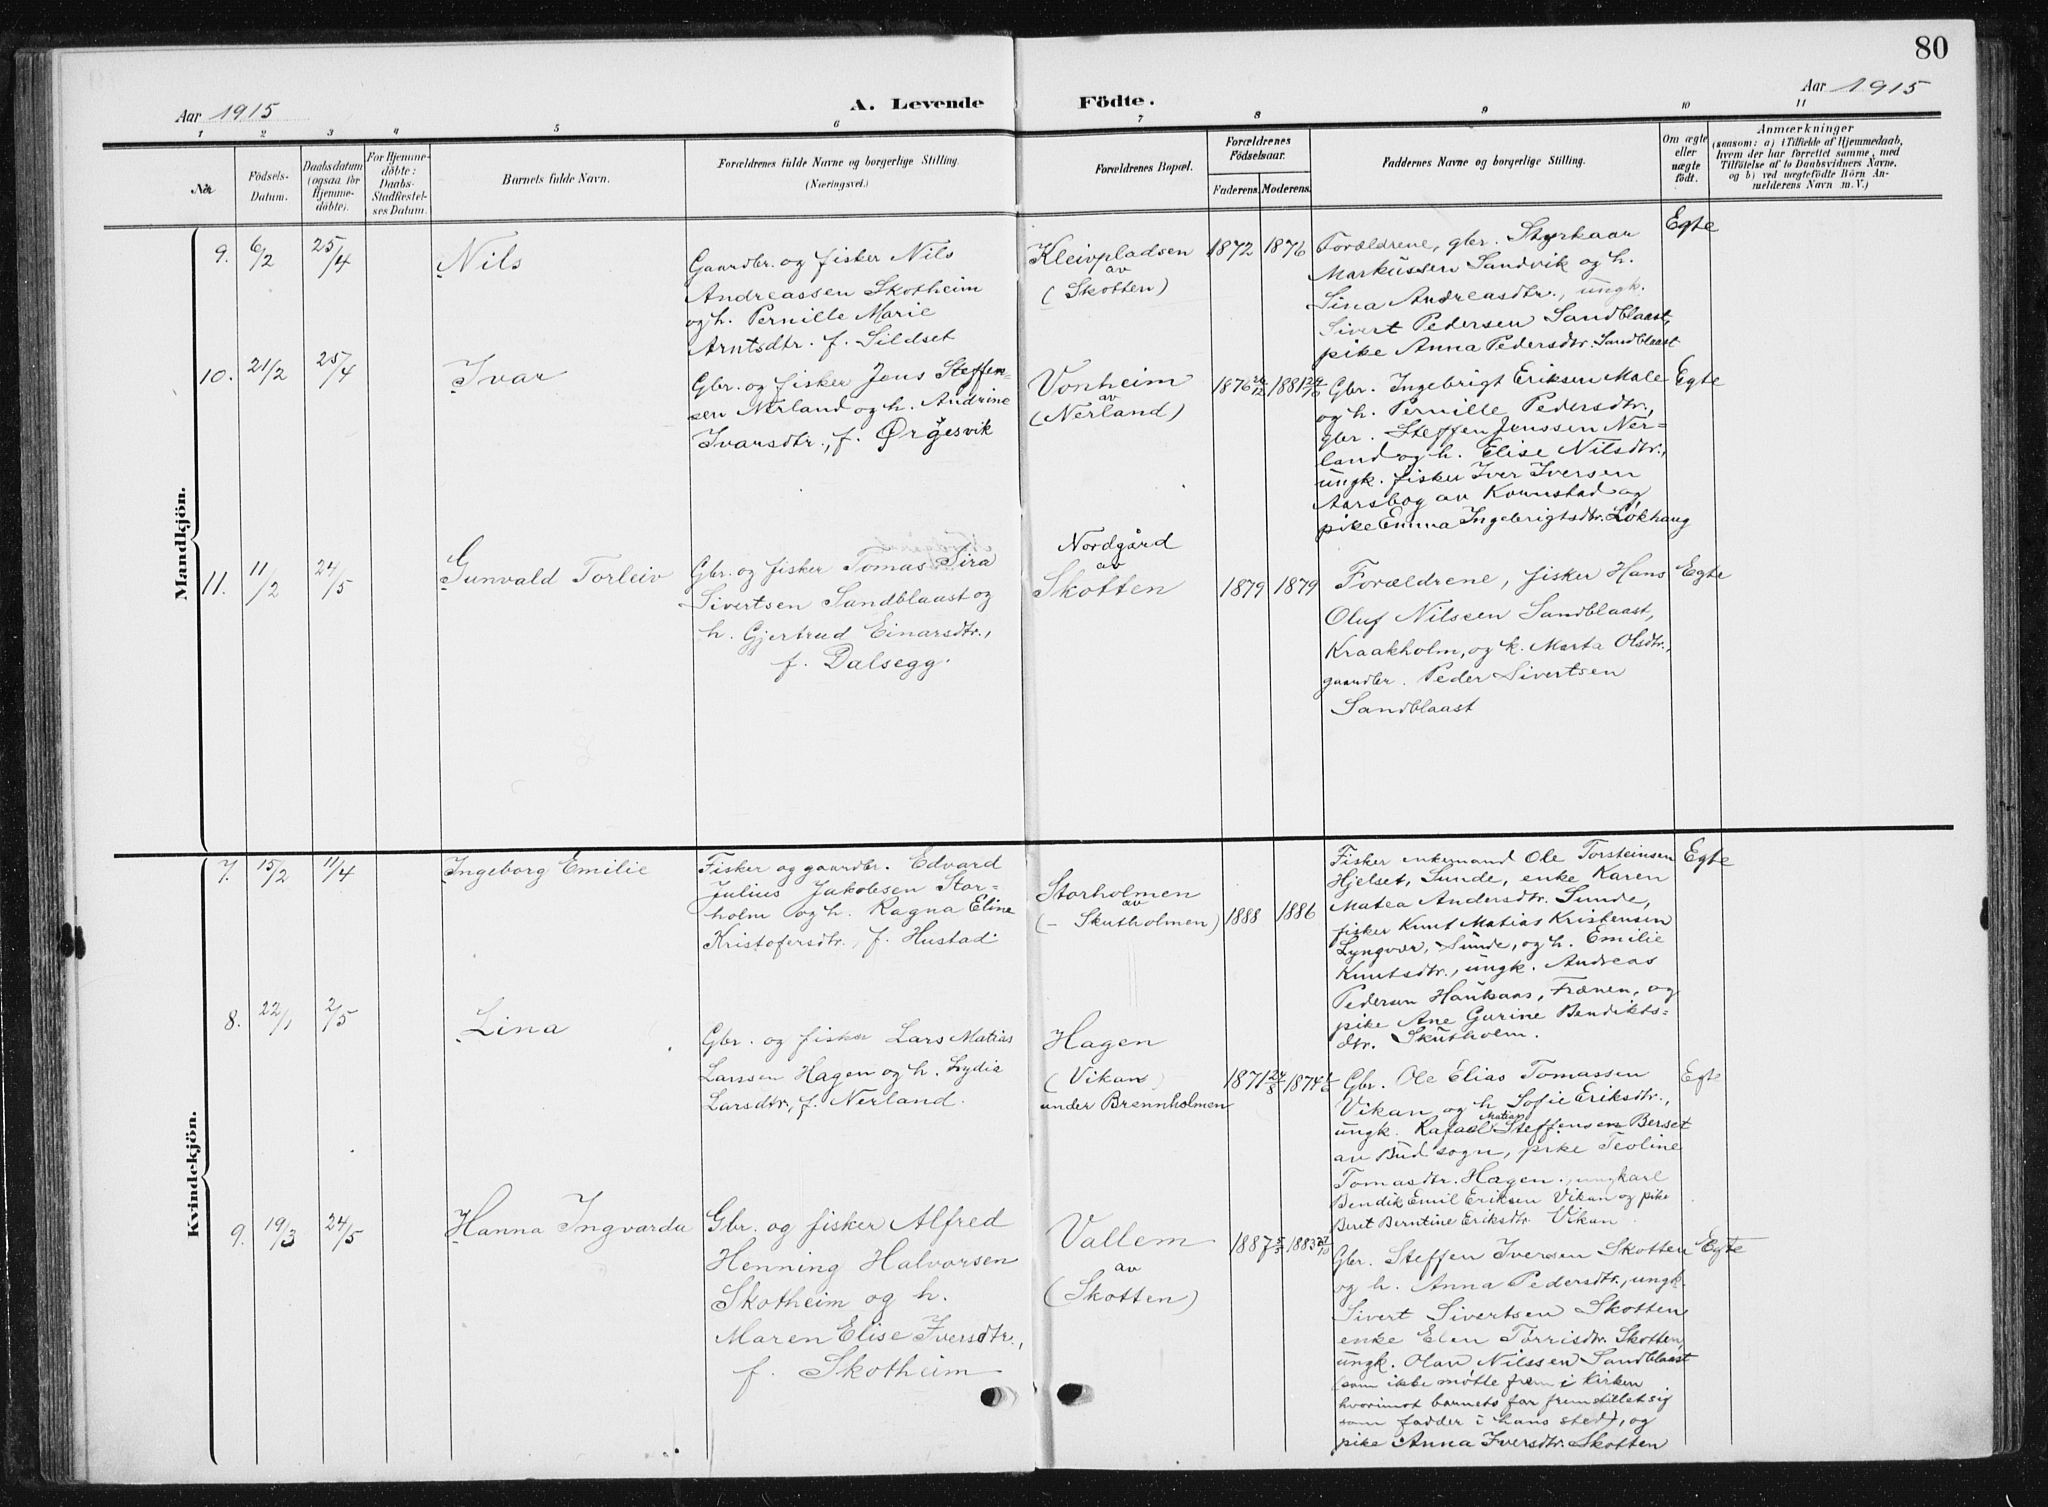 80
Aar 1915
A. Levende Födte.
Aar 1915
1 2 3 4 5 6 7 8 9 10 11
Nör
Födsels-
Datum.
Daabsdatum
(ogsaa for
Hjemme-
döbte).
For Hjemme-
döbte:
Daabs-
Stadfæstel-
ses Datum.
Barnets fulde Navn.
Forældrenes fulde Navne og borgerlige Stilling.
(Næringsvei.)
Forældrenes Bopæl.
Forældrenes
Födselsaar.
Faderens.
Moderens.
Faddernes Navne og borgerlige Stilling.
Om ægte
eller
uægte
født.
Anmærkninger
(saasom: a) i Tilfælde af Hjemmedaab,
hvem der har forrettet samme, med
Tilföielse af to Daabsvidners Navne,
og b) ved uægtefödte Börn An-
melderens Navn m. V.)
Mandkjön.
9. 6/2 25/4
Nils
Gaardbr. og fisker Nils
Andreassen Skotheim
og h. Pernille Marie
Arntsdtr. f. Sildset
Kleivpladsen
av
(Skotten)
1872 1876
Forældrene, gbr. Styrkaar
Markussen Sandvik og h.
Sina Andreasdtr., ungk.
Sivert Pedersen Sandblaast,
pike Anna Pedersdtr. Sandblaast
Egte
10. 21/2 25/4
Ivar
Gbr. og fisker Jens Steffen-
sen Nerland og h. Andrine
Ivarsdtr., f. Ørgesvik
Vonheim
av
(Nerland)
1876 1881
Gbr. Ingebrigt Eriksen Male
og h. Pernille Pedersdtr.,
gbr. Steffen Jenssen Ner=
land og h. Elise Nilsdtr.,
ungk. fisker Iver Iversen
Aarsbog av Kornstad og
pike Emma Ingebrigtsdtr. Løkhaug
Egte
11. 11/2 24/5
Gunvald Torleiv
Gbr. og fisker Tomas Sira
Sivertsen Sandblaast og
h. Gjertrud Einarsdtr.,
f. Dalsegg.
Nordgård
av
Skotten
1879 1879
Forældrene, fisker Hans
Oluf Nilssen Sandblaast,
Kraakholm, og k. Marta Olsdtr.,
gaardbr. Peder Sivertsen
Sandblaast
Egte
Kvindekjön.
7. 15/2 11/4
Ingeborg Emilie
Fisker og gaardbr. Edvard
Julius Jakobsen Stor-
holm og h. Ragna Eline
Kristofersdtr., f. Hustad.
Storholmen
av
(- Skutholmen)
1888 1886
Fisker enkemand Ole Torsteinsen
Hjelset, Sunde, enke Karen
Matea Andersdtr. Sunde,
fisker Knut Matias Kristensen
Lyngvær, Sunde, og h. Emilie
Knutsdtr., ungk. Andreas
Pedersen Haukaas, Frænen, og
pike Ane Gurine Bendikts=
dtr. Skutholm.
Egte
8. 22/1 2/5
Lina
Gbr. og fisker Lars Matias
Larssen Hagen og h. Lydia
Larsdtr., f. Nerland.
Hagen
(Vikan)
under Brennholmen
1871 24/8 1874
Gbr. Ole Elias Tomassen
Vikan og h Sofie Eriksdtr.,
Matias
ungk. Rafael Steffensen Berset
av Bud sogn, pike Teoline
Tomasdtr. Hagen, ungkarl
Bendik Emil Eriksen Vikan og pike
Beret Berntine Eriksdtr. Vikan.
Egte
9. 19/3 24/5
Hanna Ingvarda
Gbr. og fisker Alfred
Henning Halvorsen
Skotheim og h.
Maren Elise Iversdtr.,
f. Skotheim
Vallem
av
(Skotten)
1887 1883
Gbr. Steffen Iversen Skotten
og h. Anna Pedersdtr., ungk.
Sivert Sivertsen Skotten
enke Elen Tørrisdtr. Skotten,
ungk. Olav Nilssen Sandblaast
(som ikke møtte frem i kirken
hvorimot barnets far fremstillet sig
som fadder i hans sted), og
pike Anna Iversdtr. Skotten
Egte